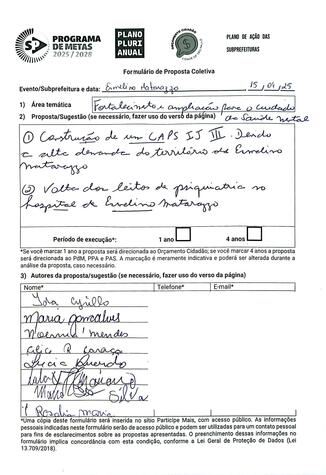 PROGRAMA
DE METAS
2025 / 2028
PLANO
PLURI
ANUAL
PLANO DE AÇÃO DAS
SUBPREFEITURAS
Formulário de Proposta Coletiva
Evento/Subprefeitura e data: Ermelino Matarazzo 15, 04, 25
1) Área temática Fortalecimento e ampliação para o cuidado
da Saúde mental
2) Proposta/Sugestão (se necessário, fazer uso do verso da página)
① Construção de um CAPS IJ III. Dendo
a alta demanda do território de Ermelino
Matarazzo
② Volta dos leitos de psiquiatria no
hospital de Ermelino Matarazzo
Período de execução*: 1 ano 4 anos
*Se você marcar 1 ano a proposta será direcionada ao Orçamento Cidadão; se você marcar 4 anos a proposta
será direcionada ao PdM, PPA e PAS. A marcação é meramente indicativa e poderá ser alterada durante a
análise da proposta, caso necessário.
3) Autores da proposta/sugestão (se necessário, fazer uso do verso da página)
Nome* Telefone* E-mail*
Maria Gonçalves
Noemia Mendes
Silva
Rosalia Maria
*Uma cópia deste formulário será inserida no sítio Participe Mais, com acesso público. As informações
pessoais indicadas neste formulário serão de acesso público e podem ser utilizadas para um contato pessoal
para fins de esclarecimentos sobre as propostas apresentadas. O preenchimento dessas informações no
formulário implica concordância com esta condição, conforme a Lei Geral de Proteção de Dados (Lei
13.709/2018).